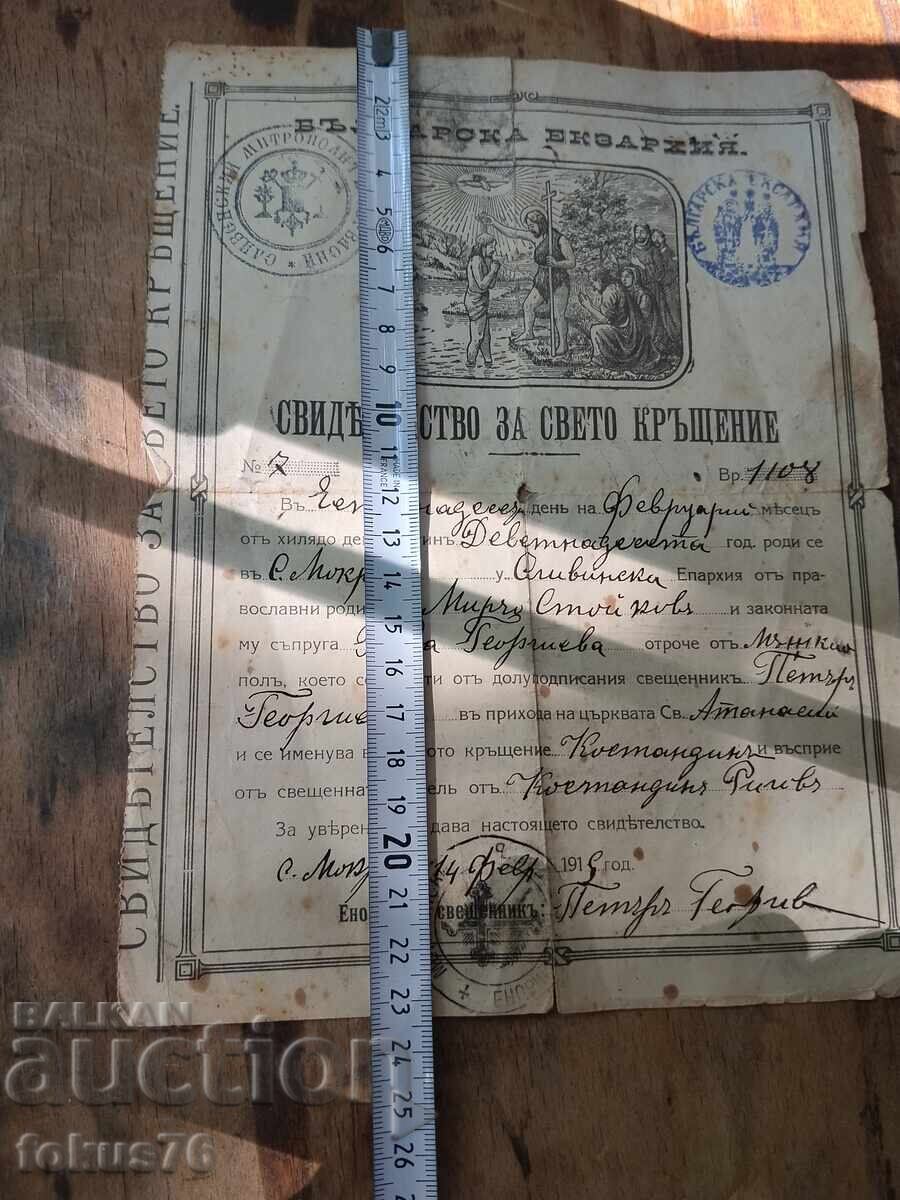 БЪЛГАРСКА ЕКЗАРХИЯ.
СЛИВЕНСКИЙ МИТРОПОЛИТ
БЪЛГАРСКА ЕКЗАРХИЯ
СВИДѢТЕЛСТВО ЗА СВЕТО КРЪЩЕНИЕ.
СВИДѢ СТВО ЗА СВЕТО КРЪЩЕНИЕ
№ 7 Вр. 1108
Въ день на Февруарий мѣсецъ
отъ хилядо де инъ Деветнадесета год. роди се
въ с. Мокр у Сливенска Епархия отъ пра-
вославни роди Мирчо Стойковъ и законната
му съпруга Георгиева отроче отъ мѫжкий
полъ, което с ти отъ долуподписания свещенникъ Петъръ
Георгие въ прихода на църквата Св. Атанасий
и се именува в ото кръщение Костандинъ и въсприе
отъ свещенна ель отъ Костандинъ
За увѣрен дава настоящето свидѣтелство.
с. Мокр 14 февр. 191 год.
Ено свещенникъ: Петъръ Георгиев
ЕНОР
2m 3
4
5
6
7
8
9
10
11
12
13
14
15
16
17
18
19
20
21
22
23
24
25
26
MADE IN FRANCE
BALKAN
auction
fokus76